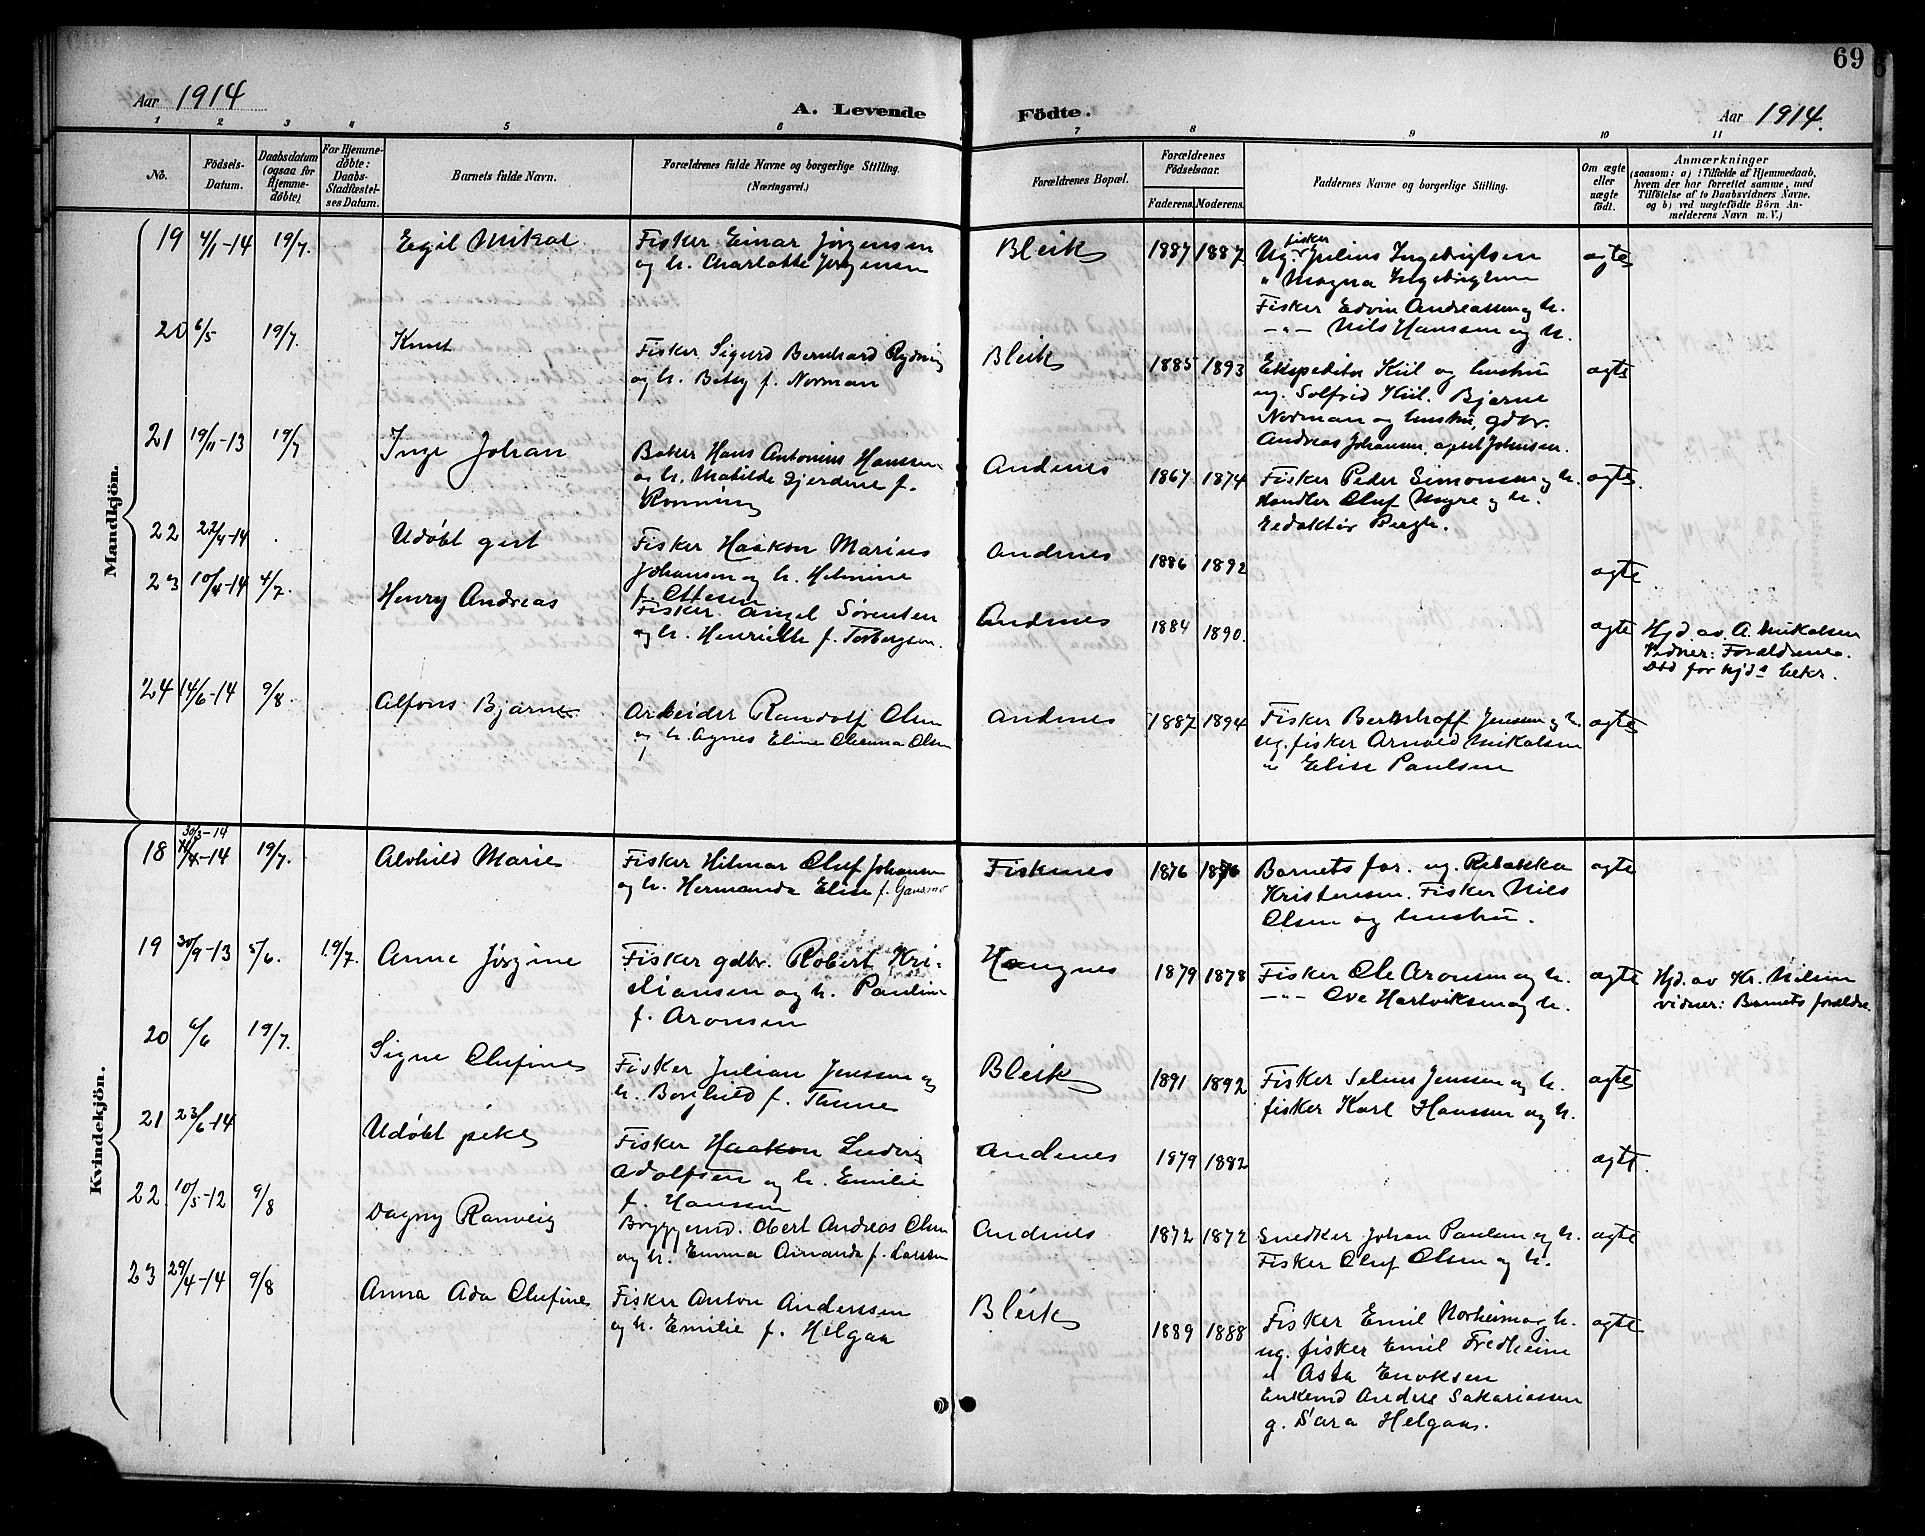 69
Aar 1914
A. Levende Födte.
Aar 1914.
1 2 3 4 5 6 7 8 9 10 11
No.
Födsels-
Datum.
Daabsdatum
(ogsaa for
Hjemme-
döbte)
For Hjemme-
döbte:
Daabs-
Stadfæstel-
ses Datum.
Barnets fulde Navn.
Forældrenes fulde Navne og borgerlige Stilling.
(Næringsvei.)
Forældrenes Bopæl.
Forældrenes
Födselsaar.
Faderens. Moderens.
Faddernes Navne og borgerlige Stilling.
Om ægte
eller
uægte
födt.
Anmærkninger
(saasom: a) i Tilfælde af Hjemmedaab,
hvem der har forrettet samme, med
Tilföielse af to Daabsvidners Navne,
og b) ved uægtefödte Börn An-
melderens Navn m. V.)
Mandkjön.
19 4/1-14 19/7. Egil Mikal
Fisker Einar Jørgensen
og h. Charlotte Jørgensen
Bleik 1887 1887
Ug. fisker Julius Ingebrigtsen
" Magna Ingebrigtsen
Fisker Edvin Andreassen og h.
-"- Nils Hanssen og h.
ægte
20 6/5 19/7. Knut
Fisker Sigurd Bernhard Rydning
og h. Betsy f. Norman
Bleik 1885 1893
Ekspeditør Kiil og hustru
ug. Solfrid Kiil. Bjarne
Norman og hustru, gdbr.
Andreas Johansen, Johnsen.
ægte
21 19/11-13 19/7 Inge Johan
Baker Hans Antonius Hanssen
og h. Matilde Gjerdine f.
Rønning
Andenes 1867 1874
Fisker Peder Simonsen og h.
Handler Oluf Myre og h.
Redaktør Bergh.
ægte.
22 22/4-14 Udøbt gut
Fisker Haakon Marius
Johansen og h. Helmine
f. Ottesen
Andenes 1886 1892 ægte
23 10/4-14 4/7. Henry Andreas
Fisker Angel Sørensen
og h. Henriette f. Torbergsen.
Andenes 1884 1890. ægte
Hjd. av A. Mikalsen
Vidner: Forældrene.
Død før hjd. bekr.
24 14/6-14 9/8. Alfons Bjarne
Arbeider Randolf Olsen
og h. Agnes Eline Olsen
Andenes 1887 1894
Fisker Bernhoff Jenssen og h.
ug. fisker Arnold Mikalsen
" Elise Paulsen
ægte
Kvindekjön.
18 30/3-14 /4-14 19/7. Alvhild Marie
Fisker Hilmar Oluf Johansen
og h. Hermanda Elise f. Gansmo
Fiskenes 1876 1876
Barnets far. ug. Rebækka
Kristensen. Fisker Nils
Olsen og hustru.
ægte
19 30/9-13 5/6. 19/7. Anne Jørgine
Fisker gdbr. Robert Kri-
stiansen og h. Pauline
f. Aronsen
Haugnes 1879 1878
Fisker Ole Aronsen og h.
-"- Ove Hartviksen og h.
ægte
Hjd. av Kr. Nilsen
vidner: Barnets forældre.
20 6/6 19/7. Signe Olufine
Fisker Julian Jenssen og
h. Borghild f. Thune
Bleik 1891 1892
Fisker Selius Jenssen og h.
fisker Karl Hanssen og h.
ægte
21 23/6-14 Udøbt pike
Fisker Haakon Ludvig
Adolfsen og h. Emilie
f. Hanssen
Andenes 1879 1882 ægte.
22 10/5-12 9/8 Dagny Ranveig
Obert Andreas Olsen
og h. Emma Amanda f. Larssen
Andenes 1872 1872
Snedker Johan Paulsen og h.
Fisker Oluf Olsen og h.
ægte
23 29/4-14 9/8 Anna Ada Olufine
Fisker Anton Anderssen
og h. Emilie f. Helgaas
Bleik 1889 1888
Fisker Emil Norheim og h.
ug. fisker Emil Fredheim
" Asta Enoksen
Enkemd Anders Sakariassen
g. Sara Helgaas.
ægte